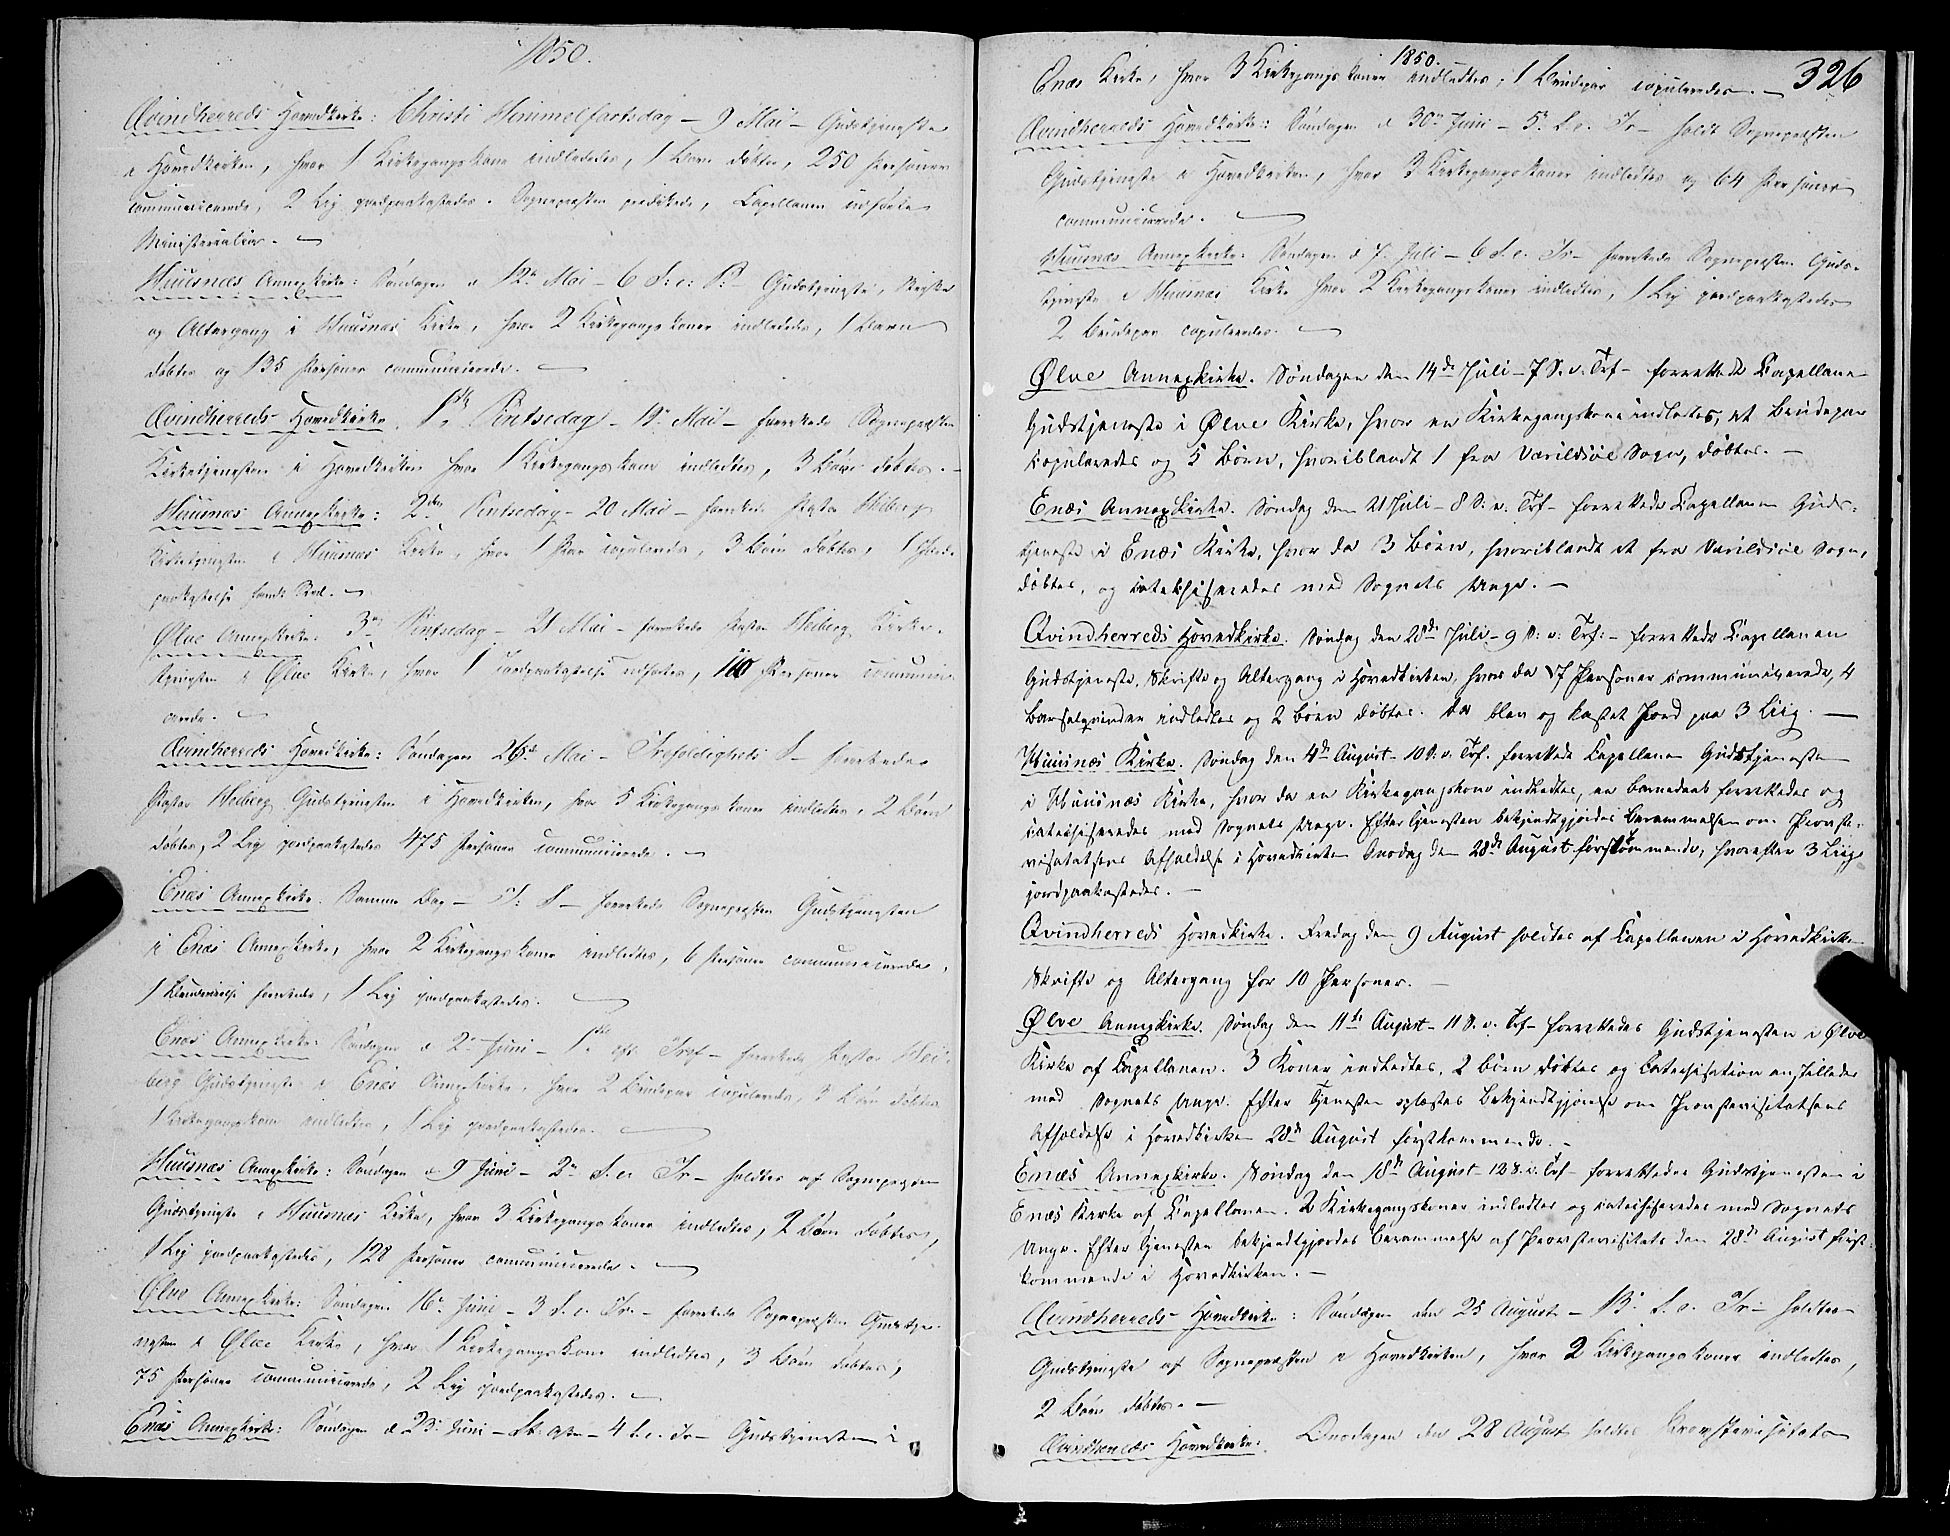 1850.
Qvindherreds Hovedkirke: Christi Himmelfartsdag – 9 Mai – Gudstjeneste
i Hovedkirken, hvor 1 Kirkegangskone indledtes, 1 Barn døbtes, 250 Personer
communicerede, 2 Lig jordpaakastedes. Sognepræsten prædikede, Capellanen udførte
Ministerialia. –
Huusnæs Annexkirke: Søndagen d 12te Mai – 6 S: e: P: – Gudstjeneste, Skrifte
og Altergang i Huusnæs Kirke, hvor 2 Kirkegangskoner indlededes, 1 Barn
døbtes og 135 Personer communicerede. –
Qvindherreds Hovedkirke. 1ste Pintsedag – 19 Mai – forrettede Sognepræsten
Kirketjenesten i Hovedkirken hvor 1 Kirkegangskone indledtes, 3 Børn døbtes. –
Huusnæs Annexkirke: 2den Pintsedag – 20 Mai – forrettede Pastor Heiberg
Kirketjenesten i Huusnæs Kirke, hvor 1 Par copuleredes, 3 Børn døbtes, 1 Jords-
paakastelse fandt Sted. –
Ølve Annexkirke. 3die Pintsedag – 21 Mai – forrettede Pastor Heiberg Kirke-
tjenesten i Ølve Kirke, hvor 1 Jordpaakastelse udførtes, 110 Personer communi-
cerede. –
Qvindherreds Hovedkirke: Søndagen 26de Mai – Trefoldigheds S – forrettede
Pastor Heiberg Gudstjenesten i Hovedkirken, hvor 5 Kirkegangskoner indledtes, 2 Børn
døbtes, 2 Lig jordpaakastedes 475 Personer communicerede. –
Enæs Annexkirke. Samme Dag – T: S – forrettede Sognepræsten Gudstjenesten
i Enæs Annexkirke, hvor 2 Kirkegangskoner indledtes, 6 Personer communicerede,
1 forrettedes, 1 Lig jordpaakastedes. –
Enæs Annexkirke: Søndagen d 2 Juni – 1ste eft Tref – forrettede Pastor Hei-
berg Gudstjeneste i Enæs Annexkirke, hvor 2 Brudepar copuleredes, 3 Børn døbtes
1 Kirkegangskone indledtes, 1 Lig jordpaakastedes. –
Huusnæs Annexkirke: Søndagen d 9 Juni – 2 S. e. Tr – holdtes af Sognepræsten
Gudstjeneste i Huusnæs Kirke, hvor 3 Kirkegangskoner indledtes, 2 Børn døbtes,
1 Lig jordpaakastedes, 128 Personer communicerede. –
Ølve Annexkirke: Søndagen 16 Juni – 3 S. e. Tr. – forrettede Sognepræsten Gudstje-
nesten i Ølve Kirke, hvor 1 Kirkegangskone indledtes, 3 Børn døbtes,
75 Personer communicerede, 2 Lig jordpaakastedes. –
Enæs Annexkirke: Søndagen d 23 Juni – – 4 S. e. Tr – Gudstjenesten i
1850.
326
Enæs Kirke, hvor 3 Kirkegangskoner indledtes, 1 Brudepar copuleredes. –
Qvindherreds Hovedkirke: Søndagen d 30te Juni – 5 S. e. Tr – holdt Sognepræsten
Gudstjeneste i Hovedkirken, hvor 3 Kirkegangskoner indledtes og 64 Personer
communicerede. –
Huusnæs Annexkirke: Søndagen d 7 Juli – 6 S. e. Tr – forrettede Sognepræsten Guds-
tjeneste i Huusnæs Kirke hvor 2 Kirkegangskoner indledtes, 1 Lig jordpaakastedes
2 Brudepar copuleredes. –
Ølve Annexkirke. Søndagen den 14de Juli – 7 S. e. Trf – forrettede Capellanen
Gudstjeneste i Ølve Kirke, hvor en Kirkegangskone indledtes, et Brudepar
copuleredes og 5 Børn, hvoriblandt 1 fra Varildsøe Sogn, døbtes. –
Enæs Annexkirke. Søndag den 21 Juli – 8 S. e. Trf – forrettede Capellanen Guds-
tjeneste i Enæs Kirke, hvor da 3 Børn, hvoriblandt et fra Varildsöe Sogn,
døbtes, og catechiseredes med Sognets Unge. –
Qvindherreds Hovedkirke. Søndag den 28de Juli – 9 S: e: Trf: – forrettede Capellanen
Gudstjeneste, Skrifte og Altergang i Hovedkirken, hvor da 57 Personer communicerede, 4
Barselqvinder indledtes og 2 Børn døbtes. Da blev og kastet Jord paa 3 Liig. –
Huusnæs Kirke. Søndag den 4de August – 10 S: e. Trf. forrettede Capellanen Gudstjenesten
i Huusnæs Kirke, hvor da en Kirkegangskone indledtes, en Barnedaab forrettedes og
catechiseredes med Sognets Unge. Efter Tjenesten bekjendtgjordes Berammelsen om Provste-
visitatsens Afholdelse i Hovedkirken Onsdag den 28de August førstkommende, hvorefter 3 Liig
jordpaakastedes. –
Qvindherreds Hovedkirke. Fredag den 9 August holdtes af Capellanen i Hovedkirken
Skrifte og Altergang for 10 Personer. –
Ølve Annexkirke. Søndag den 11te August – 11 S. e. Trf – forrettedes Gudstjenesten i Ølve
Kirke af Capellanen. 3 Koner indledtes, 2 Børn døbtes og Catechisation anstilledes
med Sognets Unge. Efter Tjenesten oplæstes Bekjendtgjørelse om Provstevisitatsens
Afholdelse i Hovedkirken 28de August førstkommende. –
Enæs Annexkirke. Søndag den 18de August – 12 S. e. Trf – forrettedes Gudstjenesten i
Enæs Kirke af Capellanen. 2 Kirkegangskoner indledtes og catechiseredes med Sognets
Unge. Efter Tjenesten bekjendtgjordes Berammelse af Provstevisitats den 28de August først-
kommende i Hovedkirken. –
Qvindherreds Hovedkirke: Søndagen den 25 August – 13 S. e. Tr – holdtes
Gudstjeneste af Sognepræsten i Hovedkirken, hvor 2 Kirkegangskoner indledtes,
2 Børn døbtes. –
Qvindherreds Hovedkirke: Onsdagen den 28 August holdtes Provstevisitats